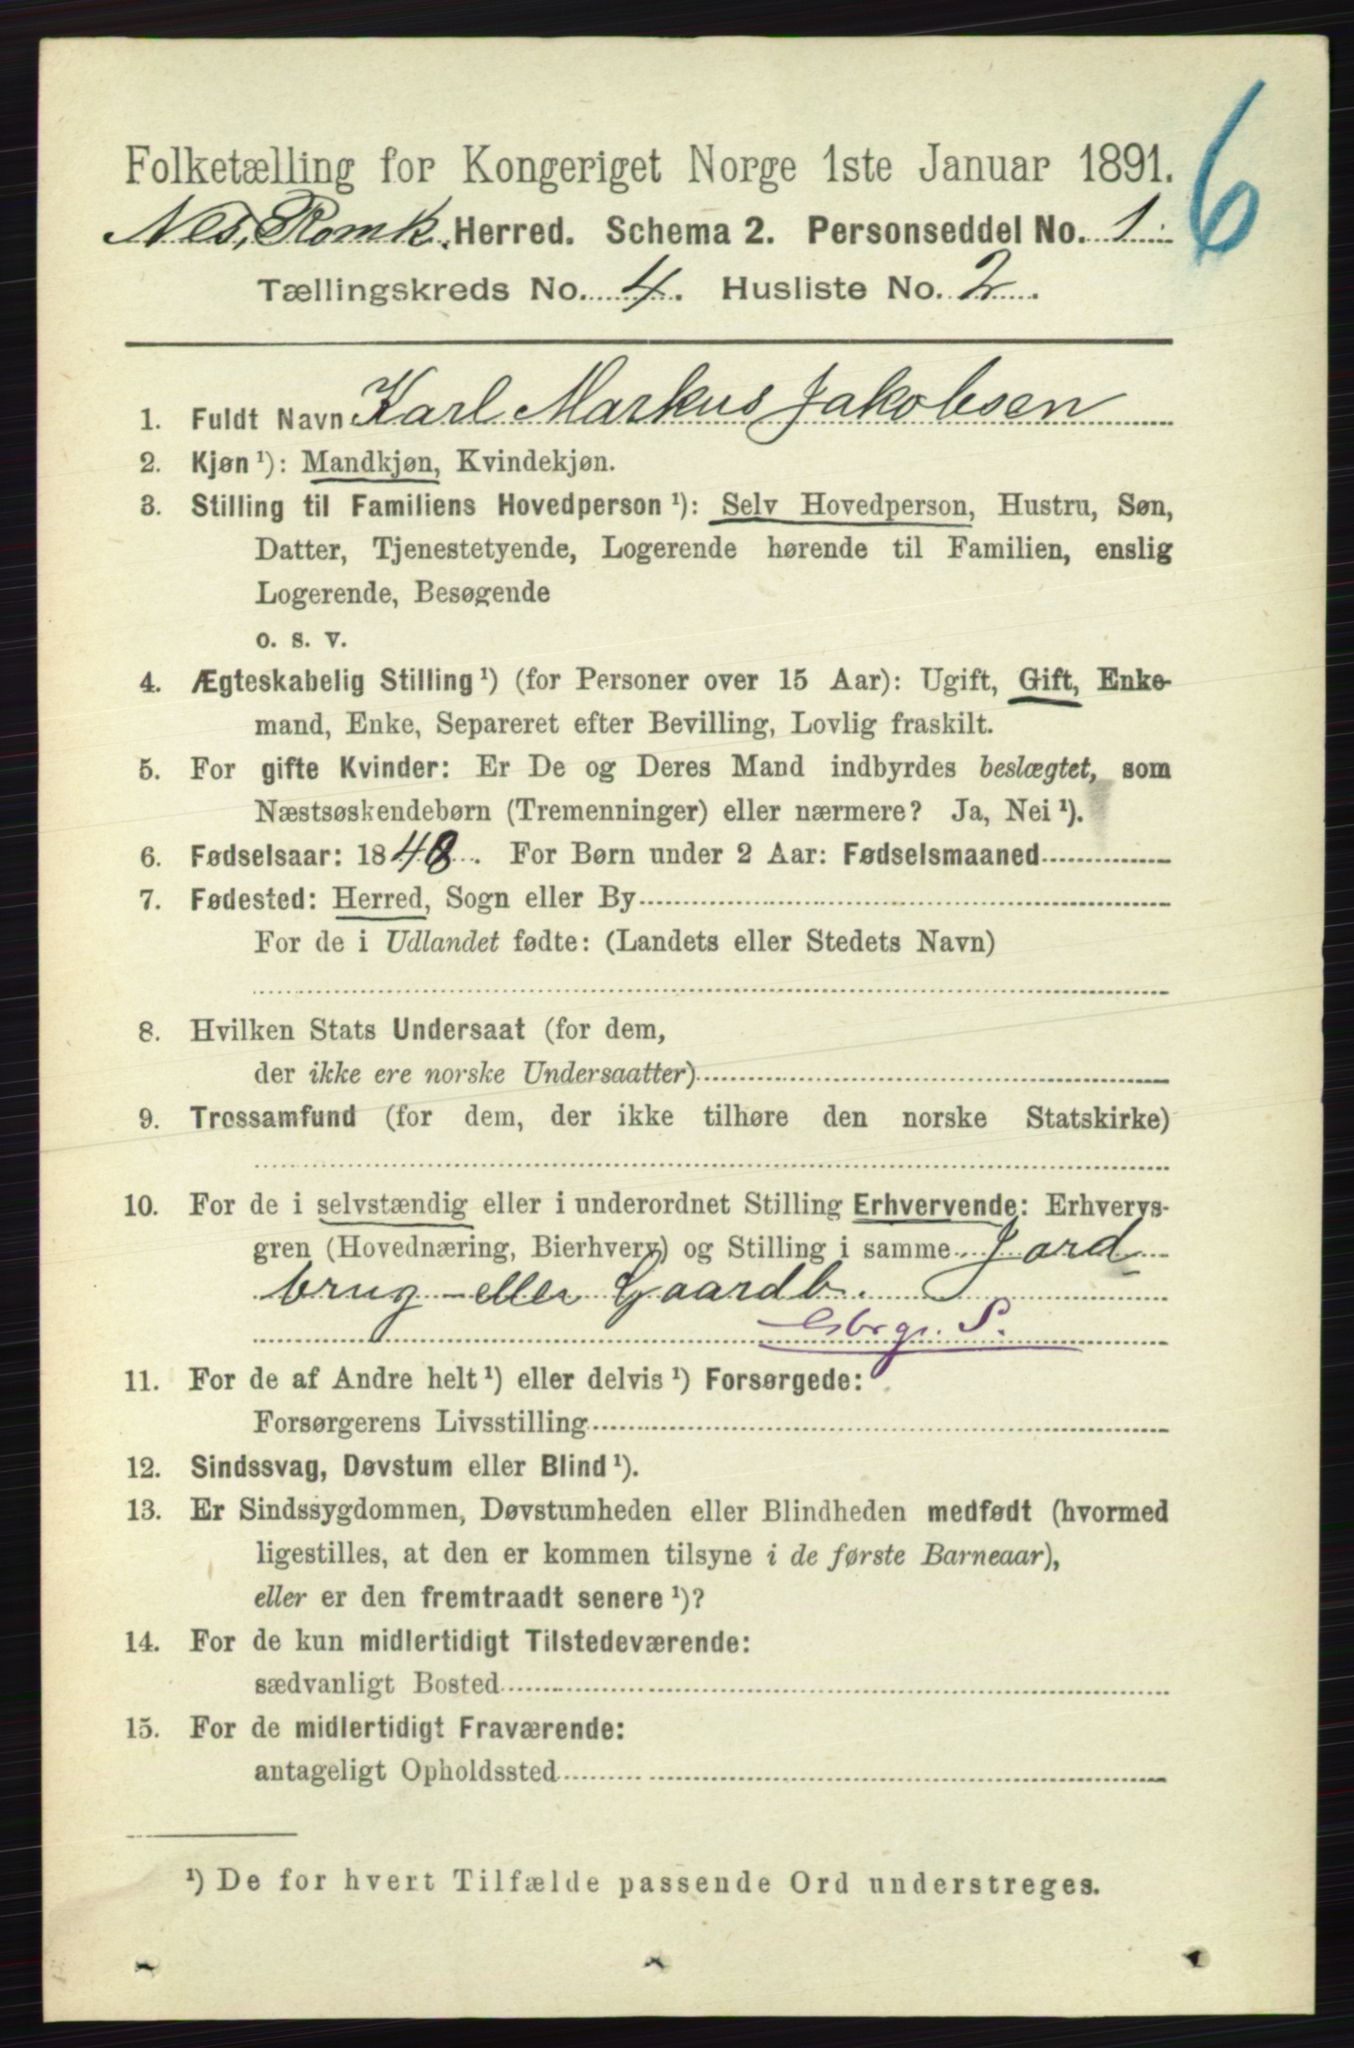 6
Folketælling for Kongeriget Norge 1ste Januar 1891.
Nes, Romk. Herred. Schema 2. Personseddel No. 1
Tællingskreds No. 4. Husliste No. 2.
1. Fuldt Navn Karl Markus Jakobsen
2. Kjøn¹): Mandkjøn, Kvindekjøn.
3. Stilling til Familiens Hovedperson¹): Selv Hovedperson, Hustru, Søn,
Datter, Tjenestetyende, Logerende hørende til Familien, enslig
Logerende, Besøgende
o. s. v.
4. Ægteskabelig Stilling¹) (for Personer over 15 Aar): Ugift, Gift, Enke-
mand, Enke, Separeret efter Bevilling, Lovlig fraskilt.
5. For gifte Kvinder: Er De og Deres Mand indbyrdes beslægtet, som
Næstsøskendebørn (Tremenninger) eller nærmere? Ja, Nei¹).
6. Fødselsaar: 1848. For Børn under 2 Aar: Fødselsmaaned
7. Fødested: Herred, Sogn eller By
For de i Udlandet fødte: (Landets eller Stedets Navn)
8. Hvilken Stats Undersaat (for dem,
der ikke ere norske Undersaatter)
9. Trossamfund (for dem, der ikke tilhøre den norske Statskirke)
10. For de i selvstændig eller i underordnet Stilling Erhvervende: Erhvervs-
gren (Hovednæring, Bierhverv) og Stilling i samme Jord
brug - eller Gaardb.
Gbrgr. S.
11. For de af Andre helt¹) eller delvis¹) Forsørgede:
Forsørgerens Livsstilling
12. Sindssvag, Døvstum eller Blind¹).
13. Er Sindssygdommen, Døvstumheden eller Blindheden medfødt (hvormed
ligestilles, at den er kommen tilsyne i de første Barneaar),
eller er den fremtraadt senere¹)?
14. For de kun midlertidigt Tilstedeværende:
sædvanligt Bosted
15. For de midlertidigt Fraværende:
antageligt Opholdssted
¹) De for hvert Tilfælde passende Ord understreges.